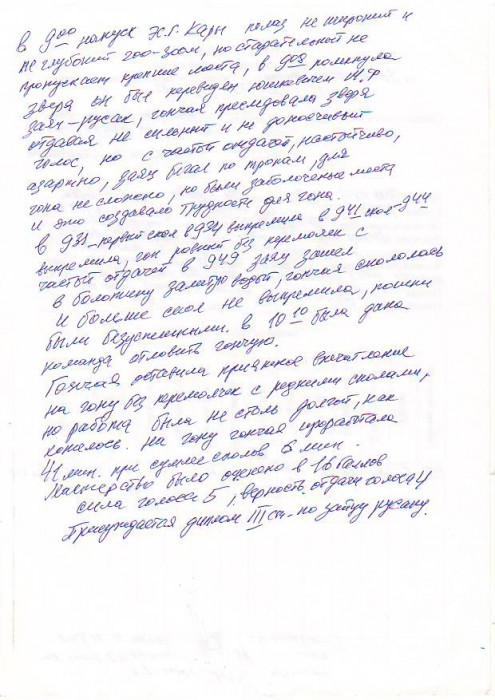 в 9⁰⁰ напуск Ж.Г. Кары полаз не широкий и
не глубокий 200-300м, но старательной не
пропускает крепкие места, в 9⁰⁸ помкнула
зверя он был перевиден Юшкевичем М.Ф
заяц-русак, гончая преследовала зверя
отдавая не сильный и не доносчивый
голос, но с частой отдачей, настойчиво,
азартно, заяц бегал по тропам, для
гона не сложно, но были заболоченые места
и это создавало трудность для гона.
в 9³¹ - первый скол в 9³⁴ выпремила в 9⁴¹ скол - 9⁴⁴
выпремила, гон ровный без перемолчек с
частой отдачей в 9⁴⁹ заяц зашел
в болотину залитую водой, гончая скололась
и больше скол не выпремила, поиски
были безуспешными. в 10¹⁰ была дана
команда отловить гончую.
Гончая оставила приятное впечатление
на гону без перемолчек с редкими сколами,
но работа была не столь долгой, как
хотелось. На гону гончая проработала
41 мин. при сумме сколов 6 мин.
Мастерство было оценено в 16 баллов
сила голоса 5, верность отдачи голоса 4
Присуждается диплом III ст. по зайцу русаку.